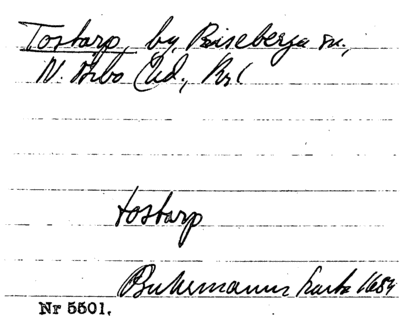 Tostarp, by, Riseberga sn.,
N. Åsbo hd., Krl
tostarp
Buhrmanns karta 1684
Nr 5501.